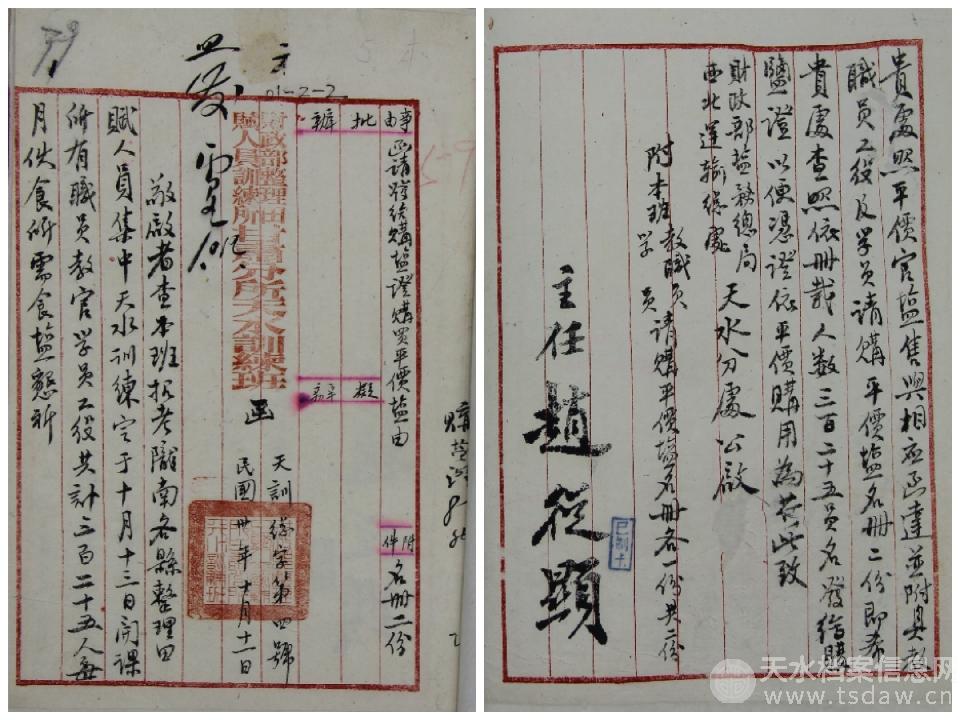 79
01-2-2
事由 批 辦
函請發給購盐證購買平價盐由
擬辦
附件 名册二份
財政部整理田
賦人員訓練所甘肅省分所天水訓練班 函
天訓總字第四號
民國卅年十月十一日
敬啟者查本班招考隴南各縣整理田
賦人員集中天水訓練定于十月十三日開課
所有職員教官学員工役共計三百二十五人每
月伙食所需食盐懇祈
貴處照平價官盐售與相应函達並附具教
職員工役及学員請購平價盐名册二份即希
貴處查照依册載人数三百二十五員名發給購
鹽證以便憑證依平價購用為荷此致
財政部盐務總局
西北運輸總處 天水分處公啟
附本班教職学員請購平價盐名册各一份共二份
主任 趙從顯
天水档案信息网
www.tsdaw.cn